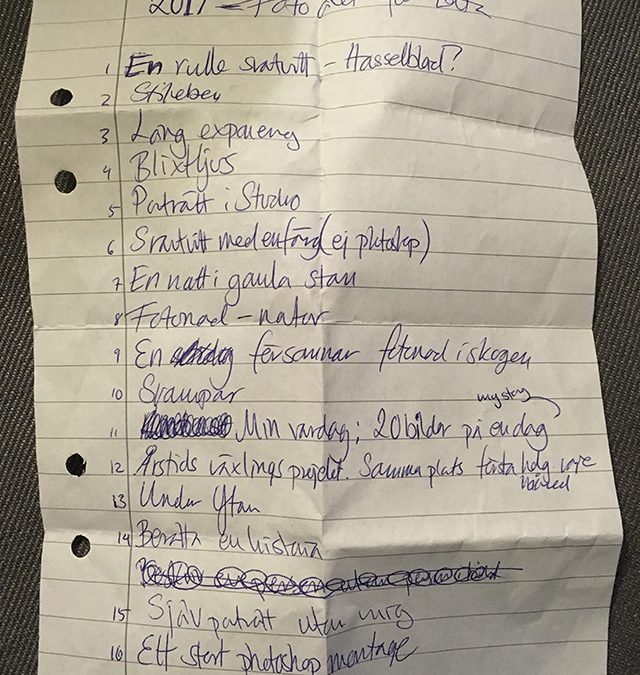 2017 ← Foto
1 En rulle svartvitt - Hasselblad?
2 Stilleben
3 Lång exponering
4 Blixtljus
5 Porträtt i Studio
6 Svartvitt med en färg (ej photoshop)
7 En natt i gamla stan
8 Fotonad - natur
9 En försommar fotonad i skogen
10 Svampar
my story
11 Min vardag; 20 bilder på en dag
12 Årstids växlings projekt. Samma plats första helg varje
månad
13 Under Ytan
14 Berätta en historia
15 Själv porträtt utan mig
16 Ett stort photoshop montage